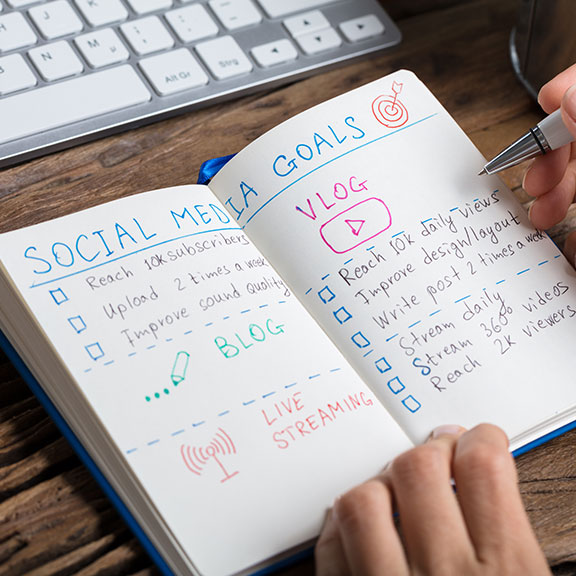 N
M µ
B
Alt Gr
Strg
SOCIAL MEDIA GOALS
Reach 10k subscribers
Upload 2 times a week
Improve sound quality
BLOG
LIVE
STREAMING
VLOG
Reach 10k daily views
Improve design/layout
Write post 2 times a week
Stream daily
Stream 360 videos
Reach 2K viewers